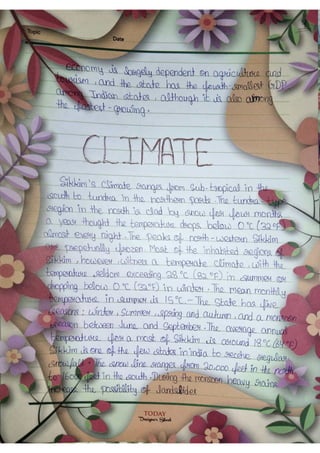 Topic
Date
economy is largely dependent on agriculture and
tourism, and the state has the fourth smallest GDP
among Indian states, although it is also among
the fastest-growing.
CLIMATE
Sikkim's climate ranges from sub-tropical in the
south to tundra in the northern parts. The tundra-type
region in the north is clad by snow for four months
a year thought the temperature drops below 0°C (32°F)
almost every night. The peaks of north-western Sikkim
are perpetually frozen. Most of the inhabited regions of
Sikkim, however, witness a temperate climate, with the
temperature seldom exceeding 28°C (82°F) in summer or
dropping below 0°C (32°F) in winter. The mean monthly
temperature in summer is 15°C.- The State has five
seasons: winter, Summer, spring and autumn, and a monsoon
season between June and September. The average annual
temperature for a most of Sikkim is around 18°C
Sikkim is one of the few states in india to receive regular
snowfall. The snow line ranges from 20,000 feet in the north
to 16000 feet in the south. During the monsoon heavy rains
increase the possibility of
TODAY
Designer Sheet